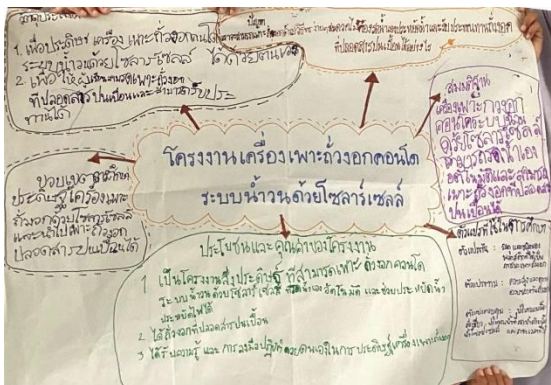 1. เพื่อประดิษฐ์ เครื่องเพาะถั่วงอกคอนโด
ระบบน้ำวนด้วยโซลาร์เซลล์ ได้ด้วยตนเอง
2. เพื่อให้ผู้เรียน เพาะถั่วงอก
ที่ปลอดสารปนเปื้อนและสามารถรับประ
ทานได้
ปัญหา
ที่ปลอดสารปนเปื้อนได้อย่างไร
สมมติฐาน
เครื่องเพาะถั่วงอก
คอนโดระบบน้ำวน
ด้วยโซลาร์เซลล์
สามารถรดน้ำเอง
อัตโนมัติและสามารถ
เพาะถั่วงอกที่ปลอดสาร
ปนเปื้อนได้
โครงงานเครื่องเพาะถั่วงอกคอนโด
ระบบน้ำวนด้วยโซลาร์เซลล์
ขอบเขตการศึกษา
ประดิษฐ์เครื่องเพาะ
ถั่วงอกด้วยโซลาร์เซลล์
และนำไปเพาะถั่วงอก
ปลอดสารปนเปื้อนได้
ประโยชน์และคุณค่าของโครงงาน
1 เป็นโครงงานสิ่งประดิษฐ์ ที่สามารถเพาะถั่วงอกคอนโด
ระบบน้ำวนด้วยโซลาร์เซลล์ รดน้ำเองอัตโนมัติ และช่วยประหยัดน้ำ
ประหยัดไฟได้
2 ได้ถั่วงอกที่ปลอดสารปนเปื้อน
3 ได้รับความรู้ และการลงมือปฏิบัติด้วยตนเองในการประดิษฐ์เครื่องเพาะถั่วงอก
ตัวแปรที่ใช้ในการศึกษา
ตัวแปรต้น :
ตัวแปรตาม :
ตัวแปรควบคุม :